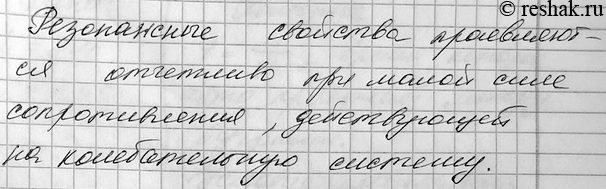 © reshak.ru
Резонансные свойства проявляют-
ся отчетливо при малой силе
сопротивления, действующей
на колебательную систему.